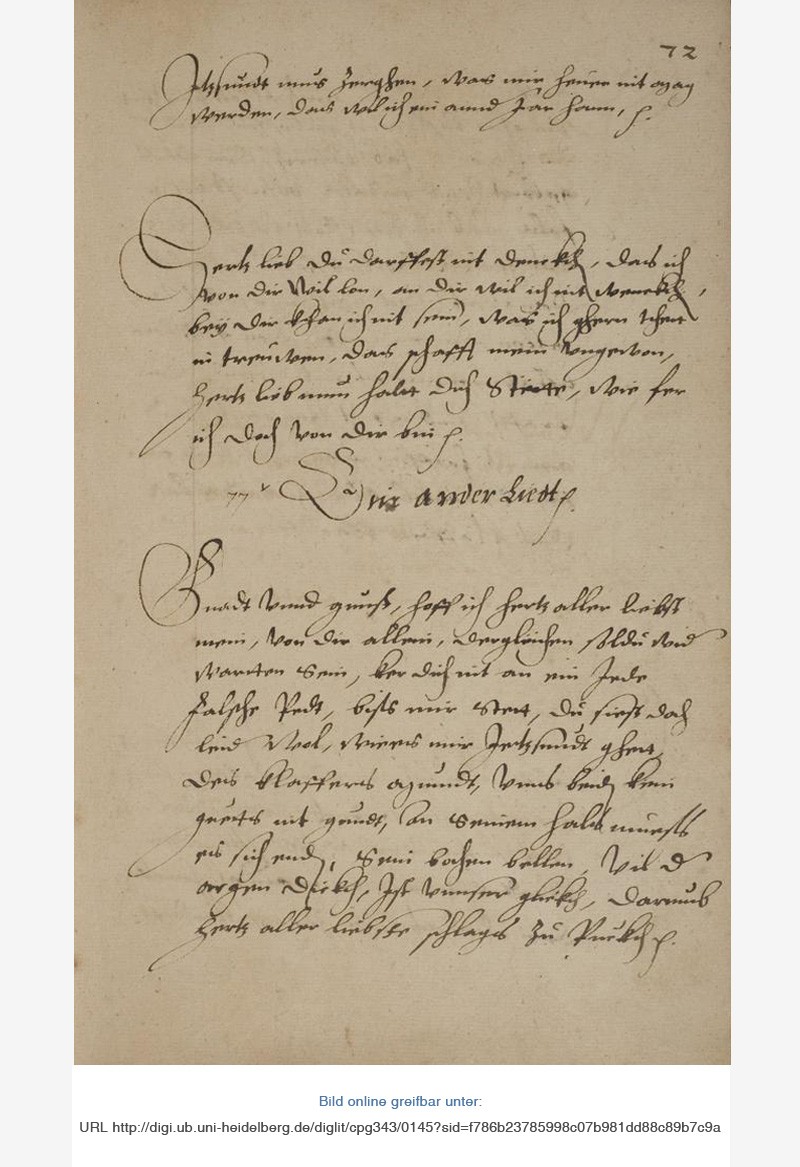 72
Itzsundt mus Zerghen, was mir heuer nit mag
werden, das wil ich ein annd Jar hann,
Hertz lieb du darffest nit denckh, das ich
von dir Wil lon, an dir wil ich nit wenckh,
bey dir khan ich nit sein, was ich ghern thett
in treuwen, das schafft mein Vngewon,
hertz lieb nun halt dich Stette, wie fer
ich doch von dir bin
77 Ein ander Liedt
Gnadt Vnnd gunst, hoff ich hertz aller liebst
mein, von dir allein, dergleichen soldu wid
warten Sein, ker dich nit an ein Jede
falsche Redt, biss mir Stett, du siest doch
leid Wol, wie es mir Jetzsundt ghett,
des klaffers mundt, Vnns beid kein
guetts nit gundt, an Seinem hals muess
es sich end, Sein bochen bellen, Vil d
argen dückh, Ist Vnnser glückh, darumb
hertz aller liebste schlags zu Ruckh
Bild online greifbar unter:
URL http://digi.ub.uni-heidelberg.de/diglit/cpg343/0145?sid=f786b23785998c07b981dd88c89b7c9a